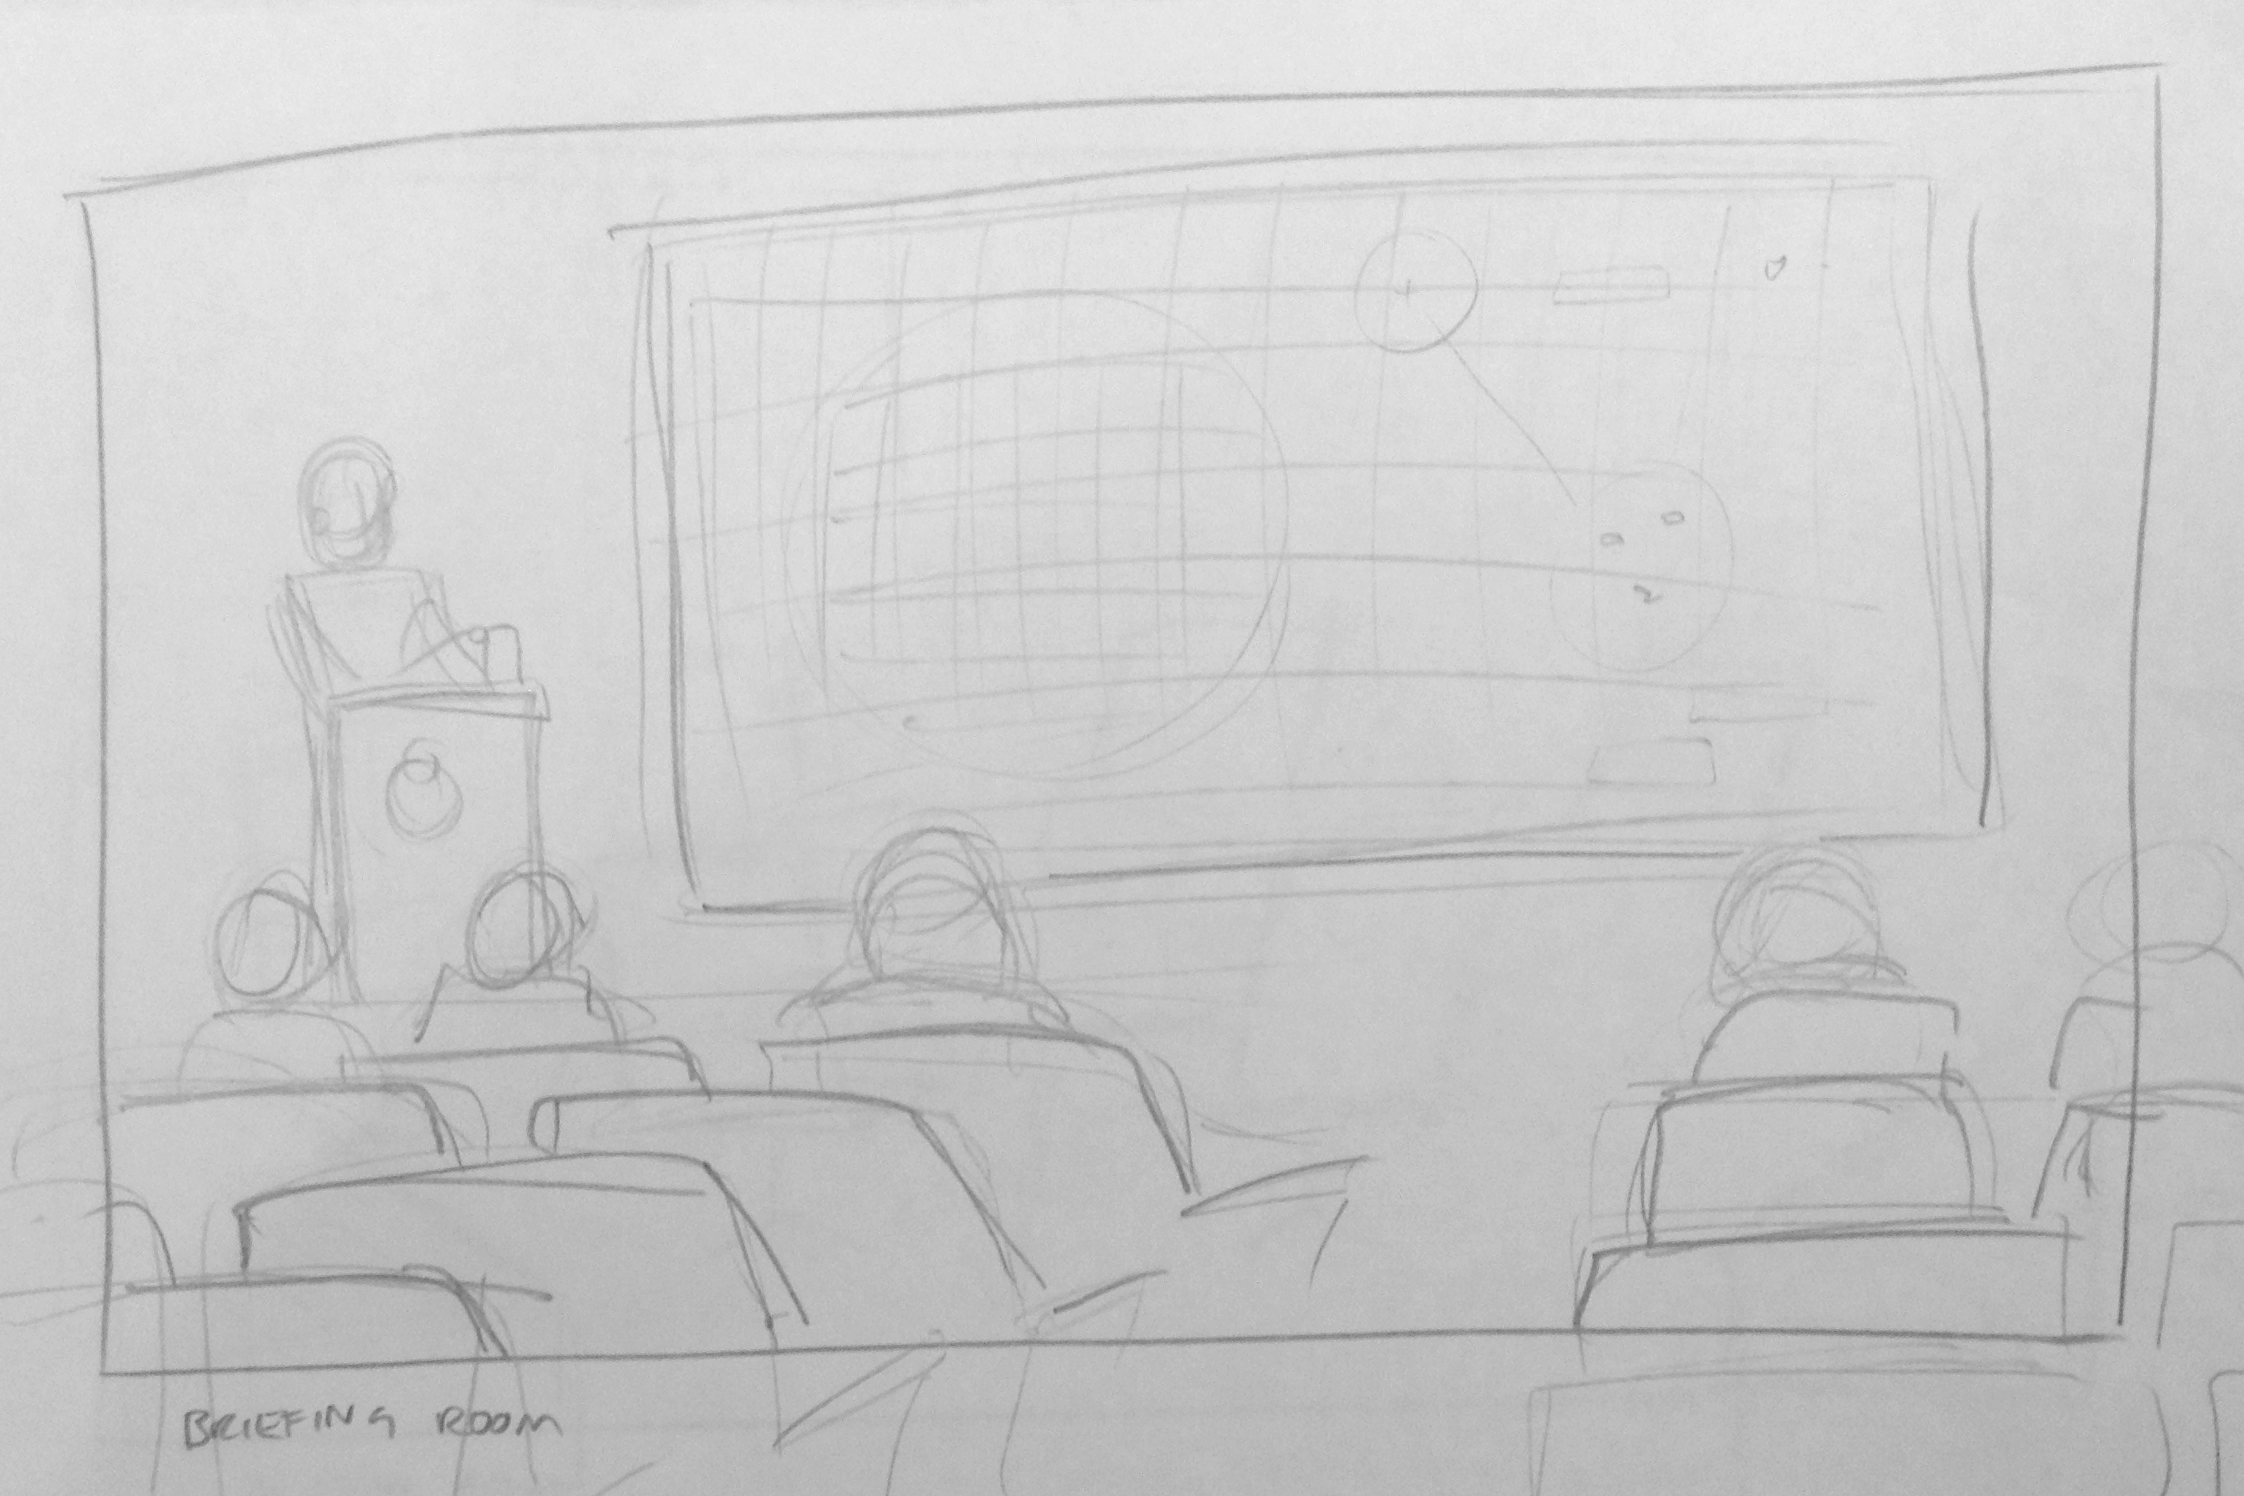 BRIEFING ROOM